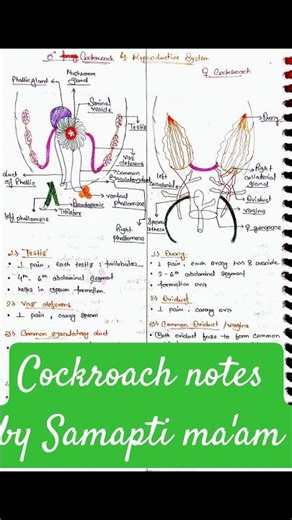 ♂ Cockroach Reproductive System
♀ Cockroach
Phallic gland
Mushroom gland
Seminal vesicle
Testis
Vas deferens
Common ejaculatory duct
duct of Phallic
Pseudopenis
ventral Phallomere
Titillator
left phallomere
Right Phallomere
Ovary
Right collaterial gland
left collaterial
Oviduct
vagina
Sperm
1) Testis
1 pair, each testis : trilobular
4th - 6th abdominal segment
helps in sperm formation
2) Vas deferens
1 pair, carry sperm
3) Common ejaculatory duct
1) Ovary
1 pair, each ovary has 8 ovariole
2 - 6th abdominal segment
formation ova
2) Oviduct
1 pair : carry ova
3) Common Oviduct / vagina
Both oviduct fuse to form common
Cockroach notes
by Samapti ma'am